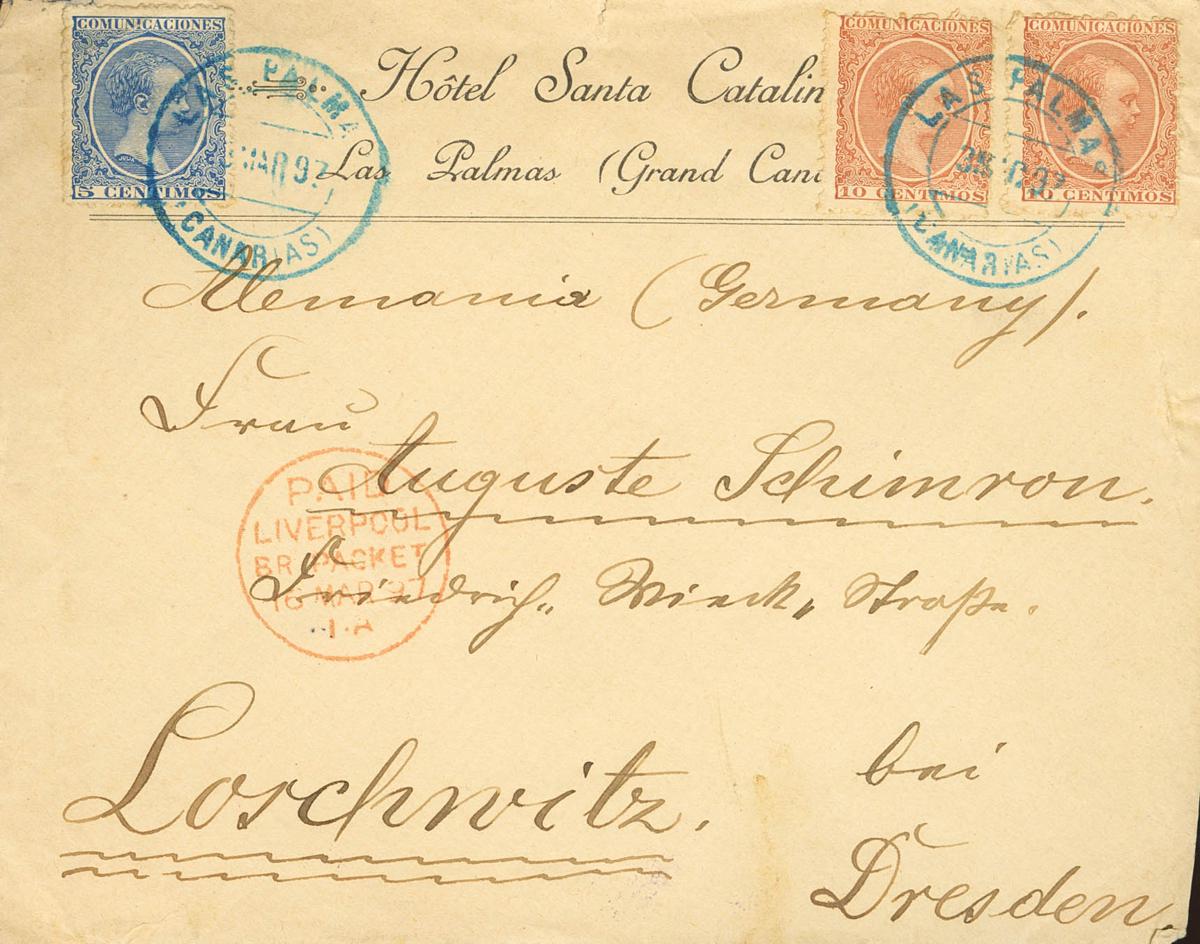 COMUNICACIONES
5 CENTIMOS
COMUNICACIONES
10 CENTIMOS
COMUNICACIONES
10 CENTIMOS
Hôtel Santa Catalin
Las Palmas (Grand Can
LAS PALMAS
MAR 97
(CANARIAS)
LAS PALMAS
97
(CANARIAS)
Alemania (Germany).
Frau
Auguste Schimron.
Friedrich„ Wieck„ Straße.
PAID
LIVERPOOL
BR. PACKET
16 MAR 97
1 A
Loschwitz.
bei
Dresden.